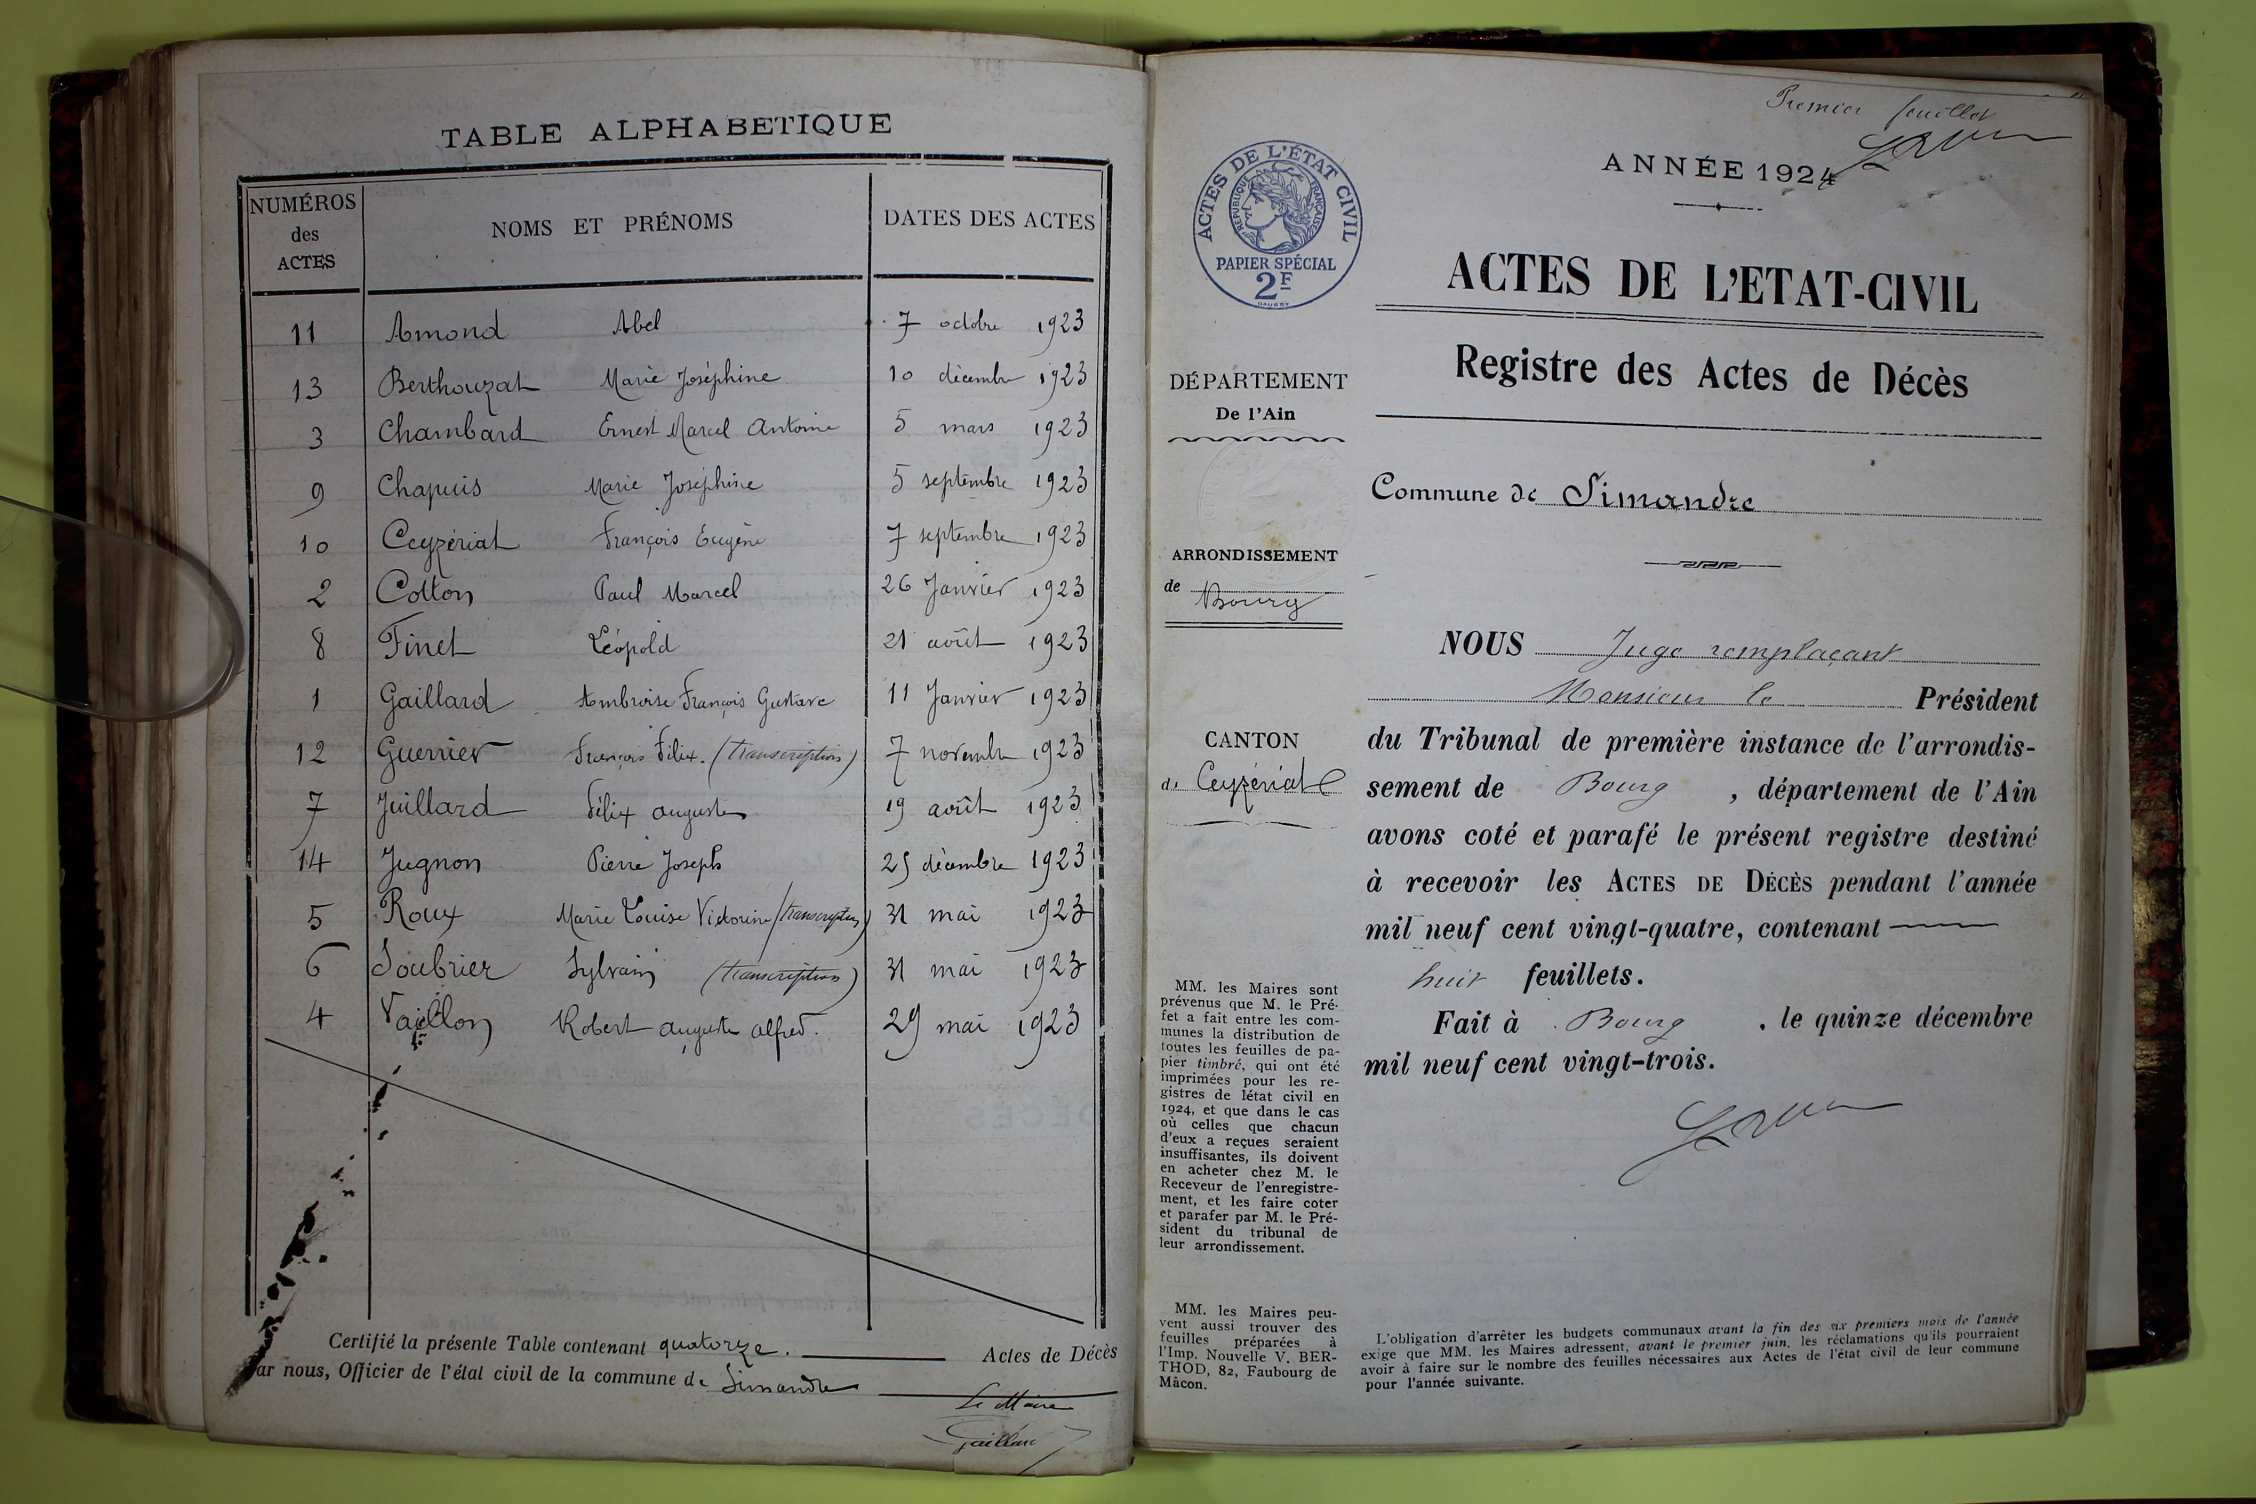 TABLE ALPHABETIQUE
NUMÉROS des ACTES NOMS ET PRÉNOMS DATES DES ACTES
11 Amond Abel 7 octobre 1923
13 Berthouzat Marie Joséphine 10 décembre 1923
3 Chambard Ernest Marcel Antoine 5 mars 1923
9 Chapuis Marie Joséphine 5 septembre 1923
10 Ceyzériat François Eugène 7 septembre 1923
2 Cotton Paul Marcel 26 Janvier 1923
8 Finet Léopold 21 août 1923
1 Gaillard Ambroise François Gustave 11 Janvier 1923
12 Guerrier François Félix. (transcription) 7 novembre 1923
7 Juillard Félix auguste 19 août 1923
14 Jugnon Pierre Joseph 25 décembre 1923
5 Roux Marie Louise Victorine (transcription) 31 mai 1923
6 Soubrier Sylvain (transcription) 31 mai 1923
4 Vaillon Robert auguste alfred. 29 mai 1923
Certifié la présente Table contenant quatorze. Actes de Décès
ar nous, Officier de l'état civil de la commune de Simandre
Le Maire
Gaillard
Premier feuillet
ANNÉE 1924
ACTES DE L'ÉTAT CIVIL
RÉPUBLIQUE FRANÇAISE
PAPIER SPÉCIAL
2F
ACTES DE L'ETAT-CIVIL
Registre des Actes de Décès
DÉPARTEMENT
De l'Ain
Commune de Simandre
ARRONDISSEMENT
de Bourg
CANTON
de Ceyzériat
NOUS Juge remplaçant
Monsieur le Président
du Tribunal de première instance de l'arrondis-
sement de Bourg, département de l'Ain
avons coté et parafé le présent registre destiné
à recevoir les ACTES DE DÉCÈS pendant l'année
mil neuf cent vingt-quatre, contenant
huit feuillets.
Fait à Bourg, le quinze décembre
mil neuf cent vingt-trois.
MM. les Maires sont
prévenus que M. le Pré-
fet a fait entre les com-
munes la distribution de
toutes les feuilles de pa-
pier timbré, qui ont été
imprimées pour les re-
gistres de létat civil en
1924, et que dans le cas
où celles que chacun
d'eux a reçues seraient
insuffisantes, ils doivent
en acheter chez M. le
Receveur de l'enregistre-
ment, et les faire coter
et parafer par M. le Pré-
sident du tribunal de
leur arrondissement.
MM. les Maires peu-
vent aussi trouver des
feuilles préparées à
l'Imp. Nouvelle V. BER-
THOD, 82, Faubourg de
Mâcon.
L'obligation d'arrêter les budgets communaux avant la fin des six premiers mois de l'année
exige que MM. les Maires adressent, avant le premier juin, les réclamations qu'ils pourraient
avoir à faire sur le nombre des feuilles nécessaires aux Actes de l'état civil de leur commune
pour l'année suivante.